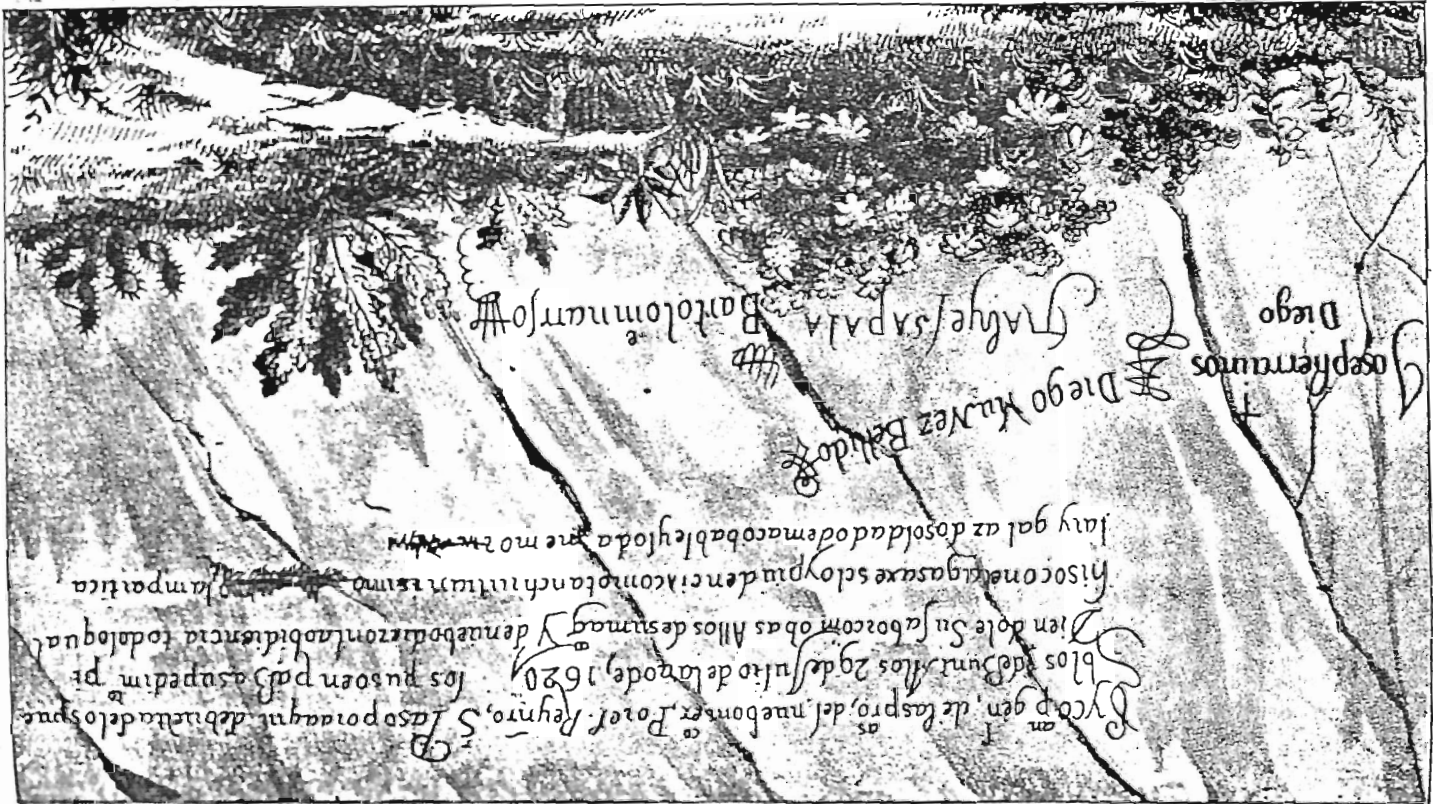 yCap^an gen, de las pro^as, del, nuebomex^co, Por el. Rey nrõ, S, Paso poraqui debuelta delospue
blos de Zuni Alos 29 deJulio delanode, 1620, Y los pusoen paß asupedim^to pi
Dien dole Su fabor com obas Allos desumag^d Y denuebodieronlaobidiencia todoloqual
hisoconelagasaxe seloyprudenciacomotanchristianisimo tamparticu
lary gal azdosoldadodeinacobableyloda memo
Diego Nuñez Bellido
Joseph ramos
Diego
Bartolomnarro